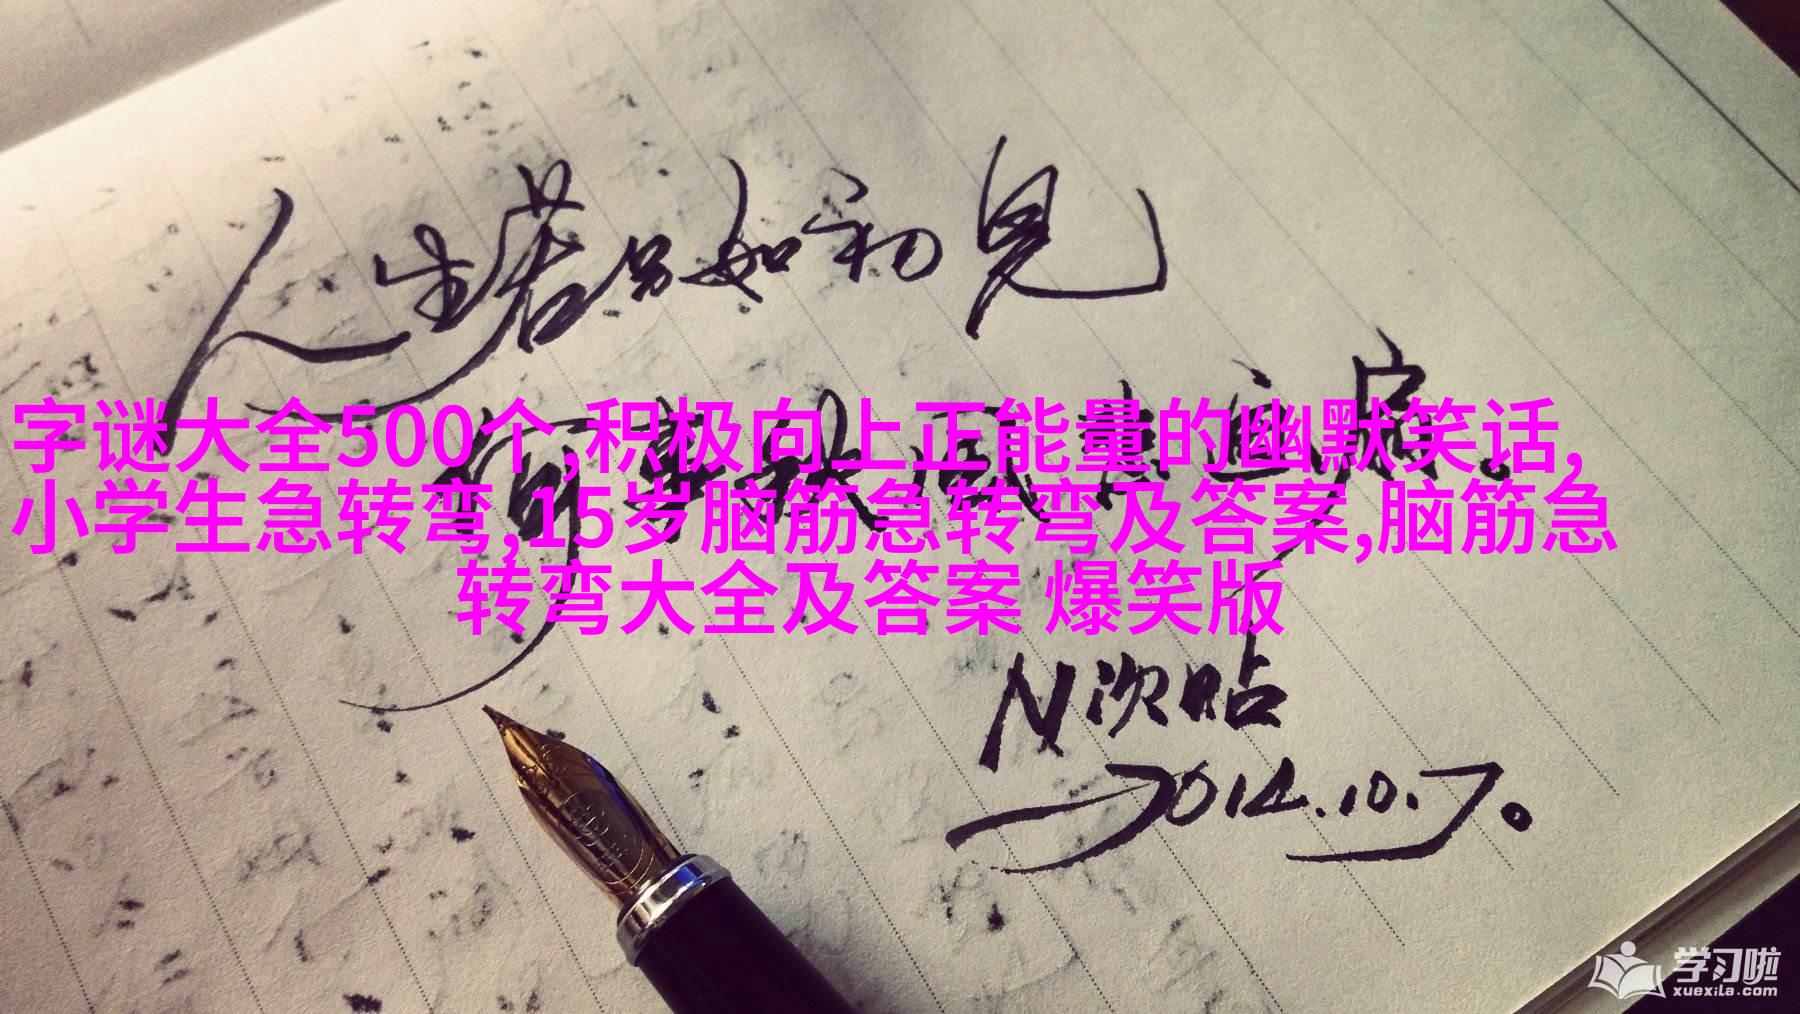 人生若只如初见
何事秋风悲画扇。
字谜大全500个,积极向上正能量的幽默笑话,
小学生急转弯,15岁脑筋急转弯及答案,脑筋急
转弯大全及答案 爆笑版
N次贴
2014.10.7。
学习啦
xuexila.com